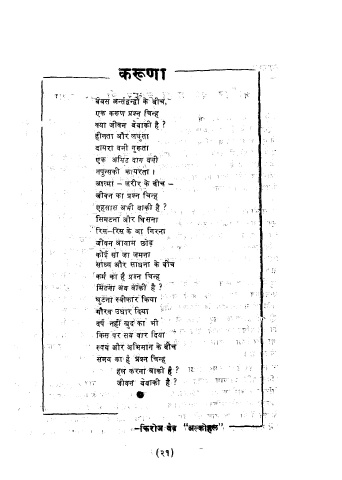 करुणा
बेबस अन्तर्द्वन्द्वों के बीच,
एक करुण प्रश्न चिन्ह
क्या जीवन बेबाकी है ?
हीनता और लघुता
दायरा बनी गुरुता
एक अमिट दाग बनी
नपुंसकी कायरता ।
आत्मा – शरीर के बीच –
जीवन का प्रश्न चिन्ह
एहसास अभी बाकी है ?
सिमटना और घिसना
रिस-रिस के आ गिरना
जीवन आयाम छोड़
कोई सा जा जमना
साध्य और साधना के बीच
कर्म का है प्रश्न चिन्ह
मिटना अब बाकी है ?
घुटना स्वीकार किया
गौरव उधार दिया
दर्प नहीं खुद का भी
किस पर सब वार दिया
स्वयं और अभिमान के बीच
समय का है प्रश्न चिन्ह
हल करना बाकी है ?
जीवन बेबाकी है ?
–फिरोज "अल्कोहल"
(२१)